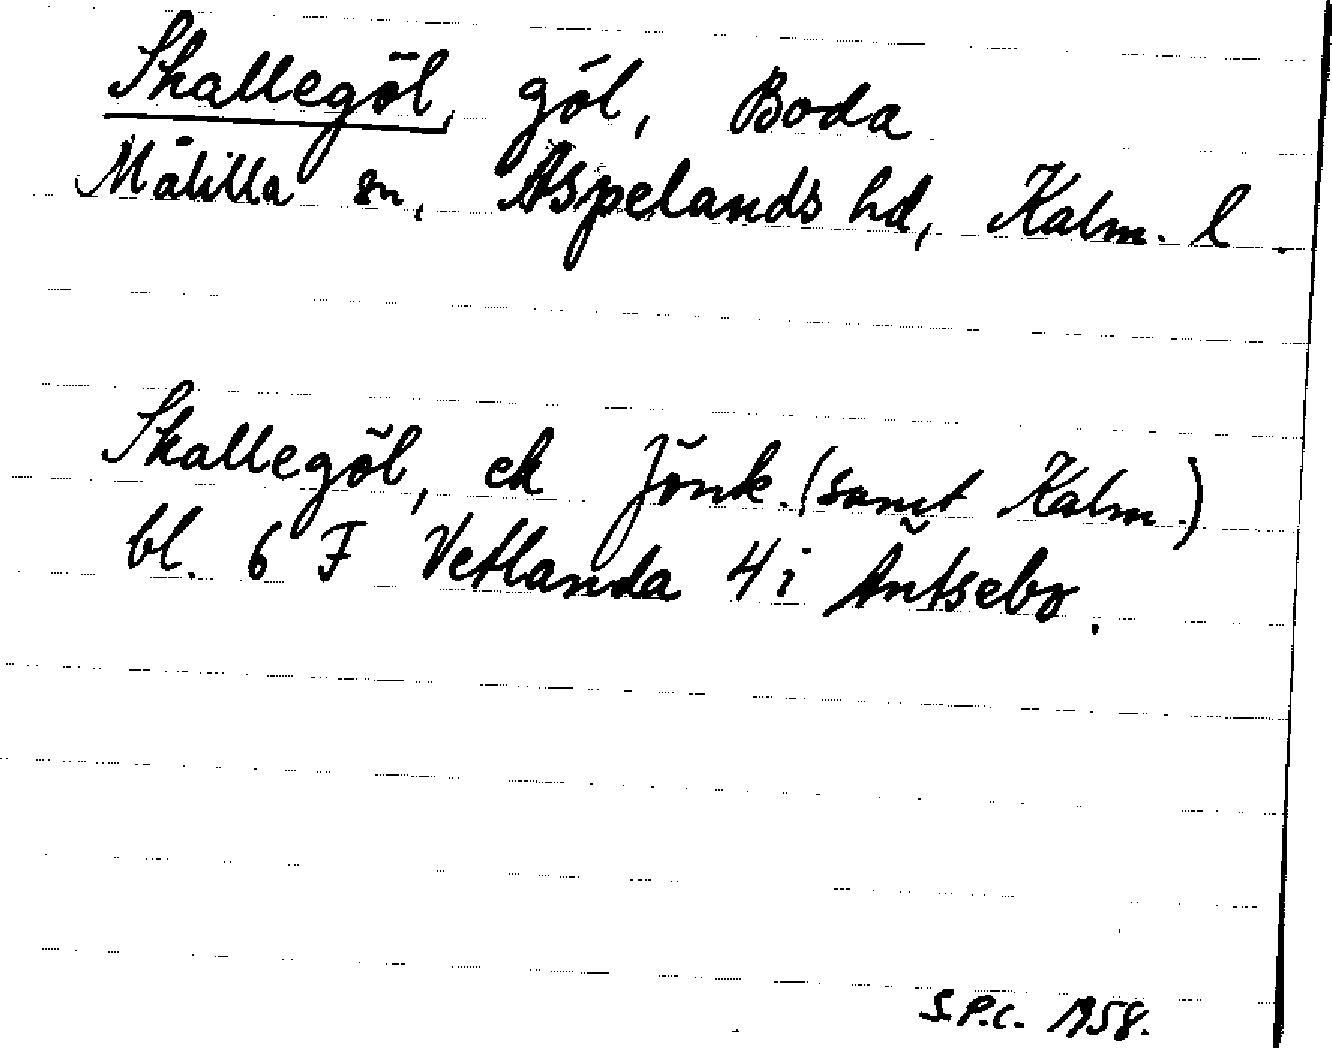 Skallegöl, göl, Boda
Målilla sn, Aspelands hd, Kalm. l.
Skallegöl, ek Jönk. (samt Kalm.)
bl. 6 F Vetlanda 4 i Äntsebo.
S.P.C. 1958.